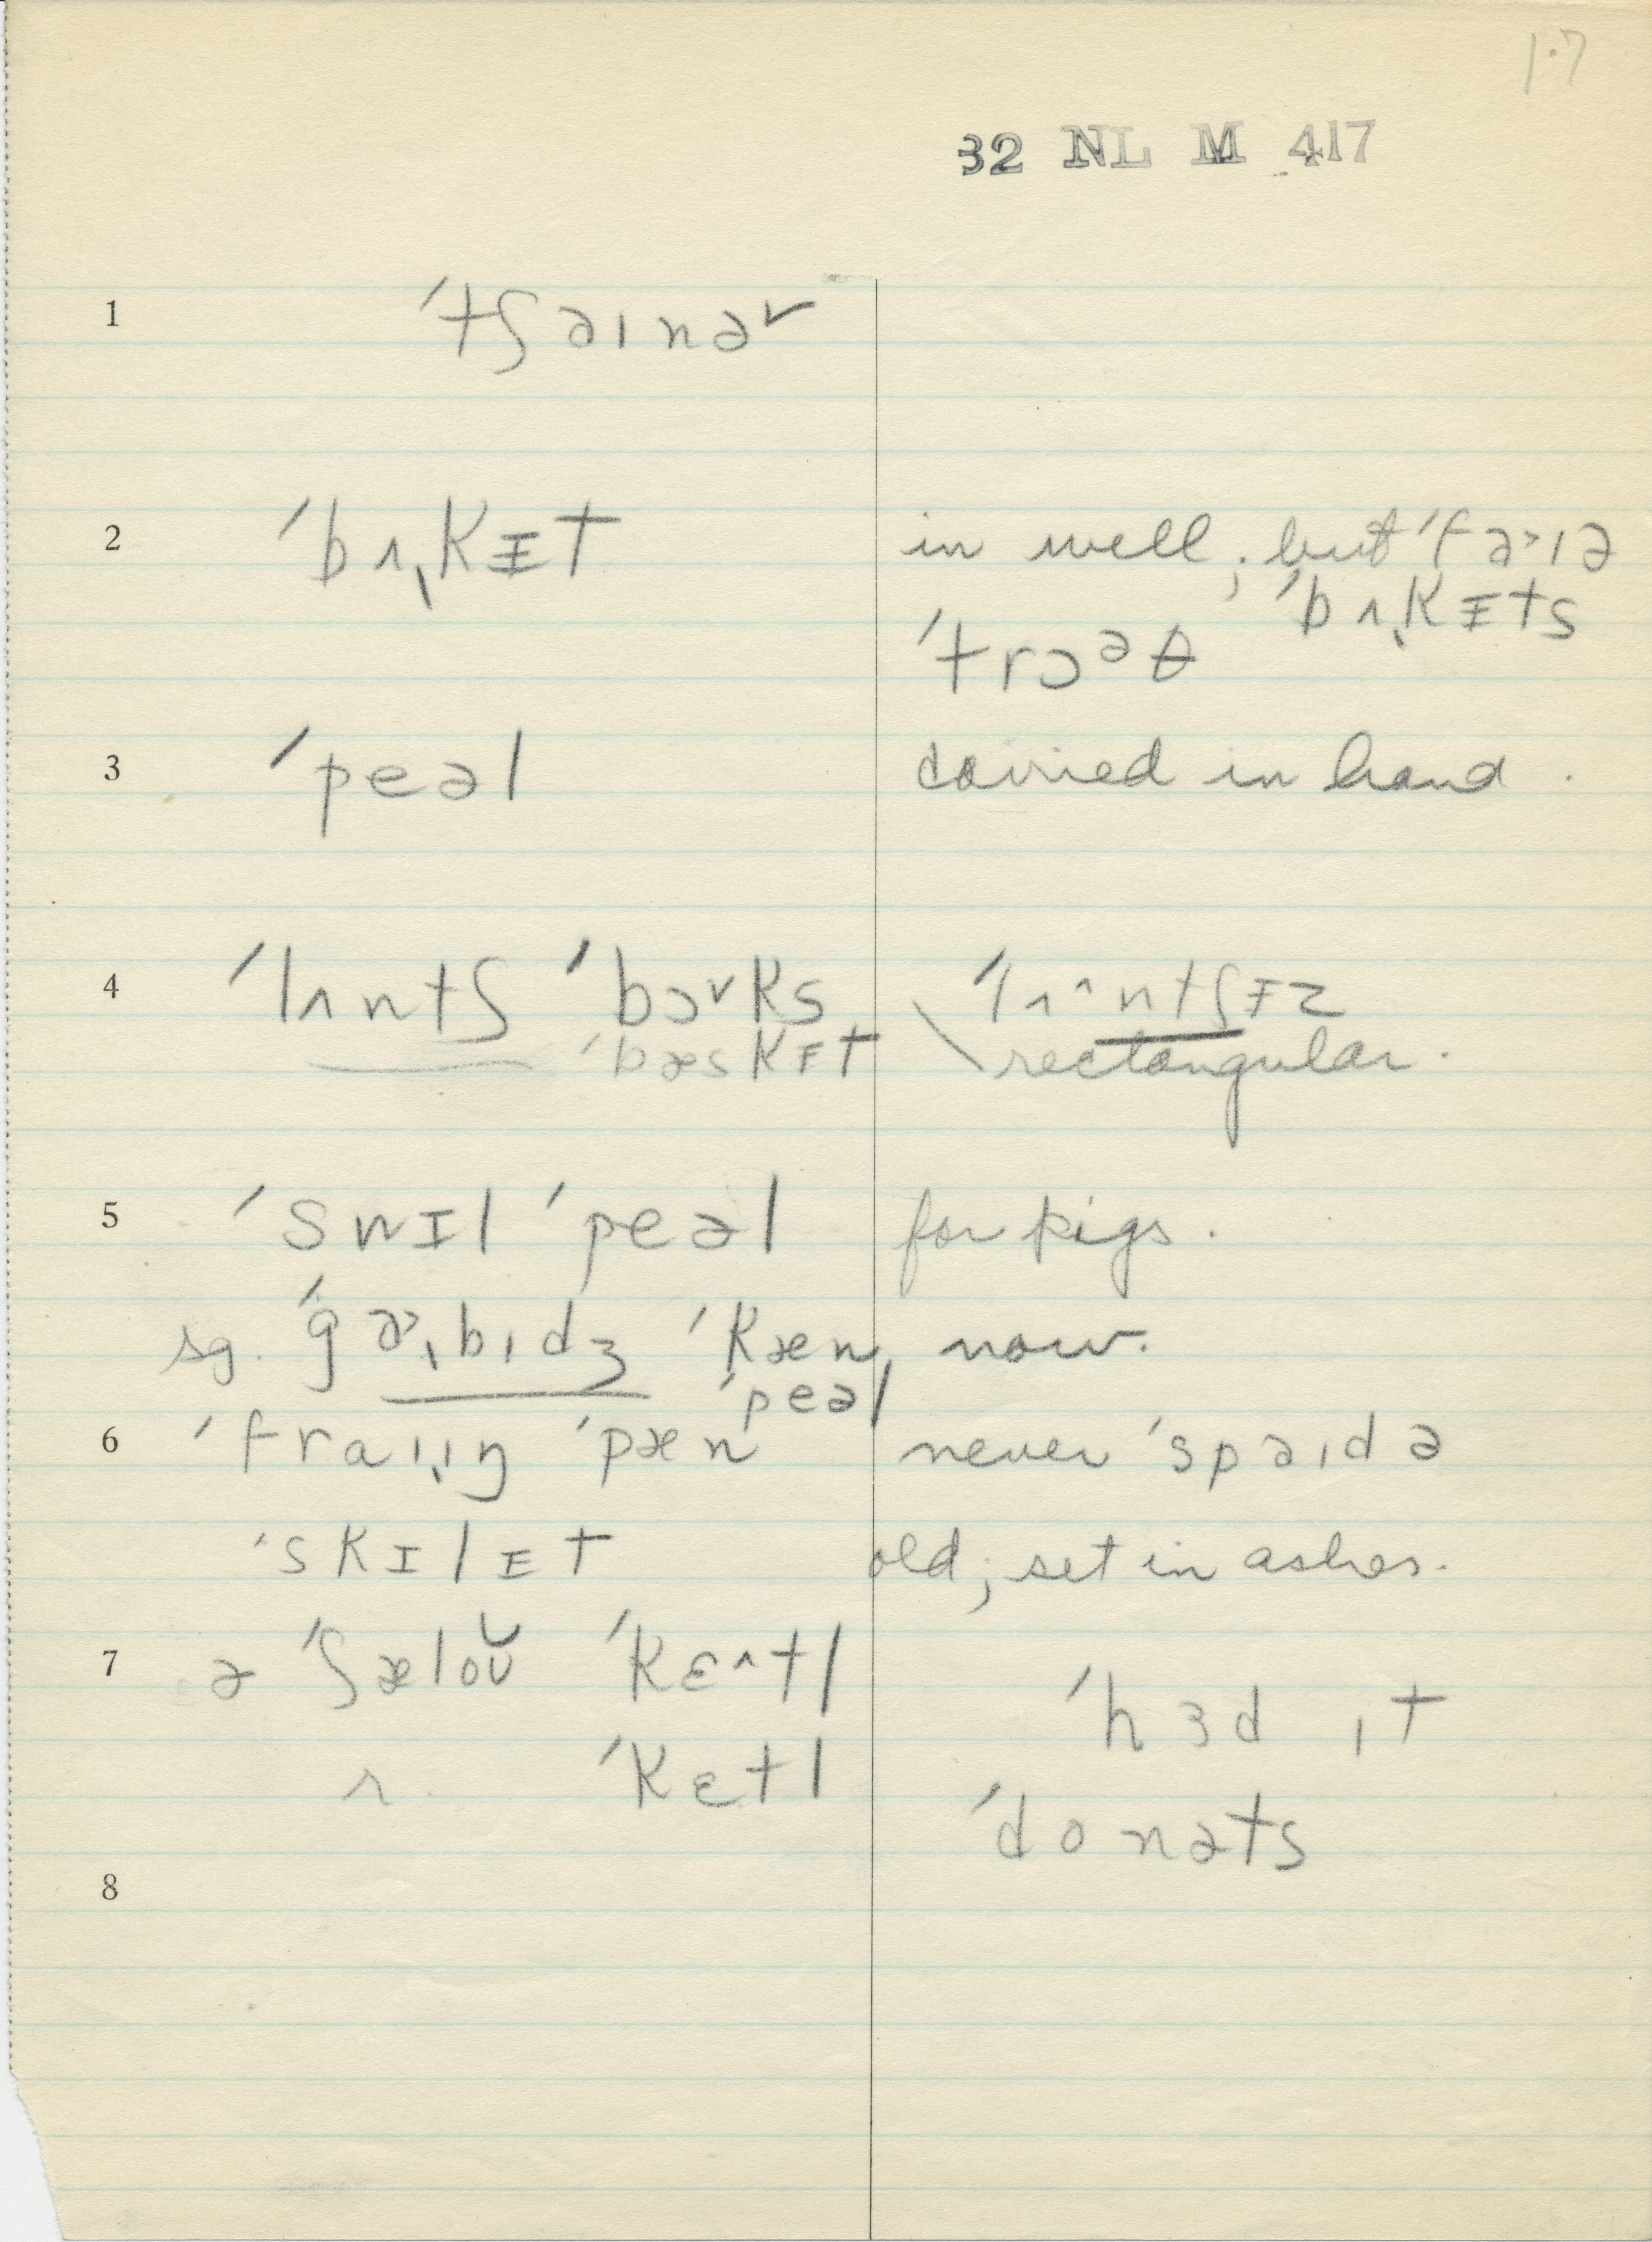 17
32 NL M 417
1 ˈtʃaɪnə˅
2 ˈbʌ̢kɪt in well; but ˈfaɪə
ˈbʌ̢kɪts
ˈtrɔᵊθ
3 ˈpeəl carried in hand.
4 ˈlʌntʃ ˈbɔ˅ks ˈlʌ^ntʃɪz
ˈbæskɪt \rectangular.
5 ˈswɪl ˈpeəl for pigs.
sg. ˈgɑ˃ˌbɪdʒ ˈkæn, now.
ˈpeəl
6 ˈfraɪˌɪŋ ˈpæn never ˈspaɪdə
ˈskɪlɪt old; set in ashes.
7 ə ˈʃæloʊ̆ ˈkɛ^tl ˈhɜd ɪt
r. ˈkɛtl
ˈdonəts
8